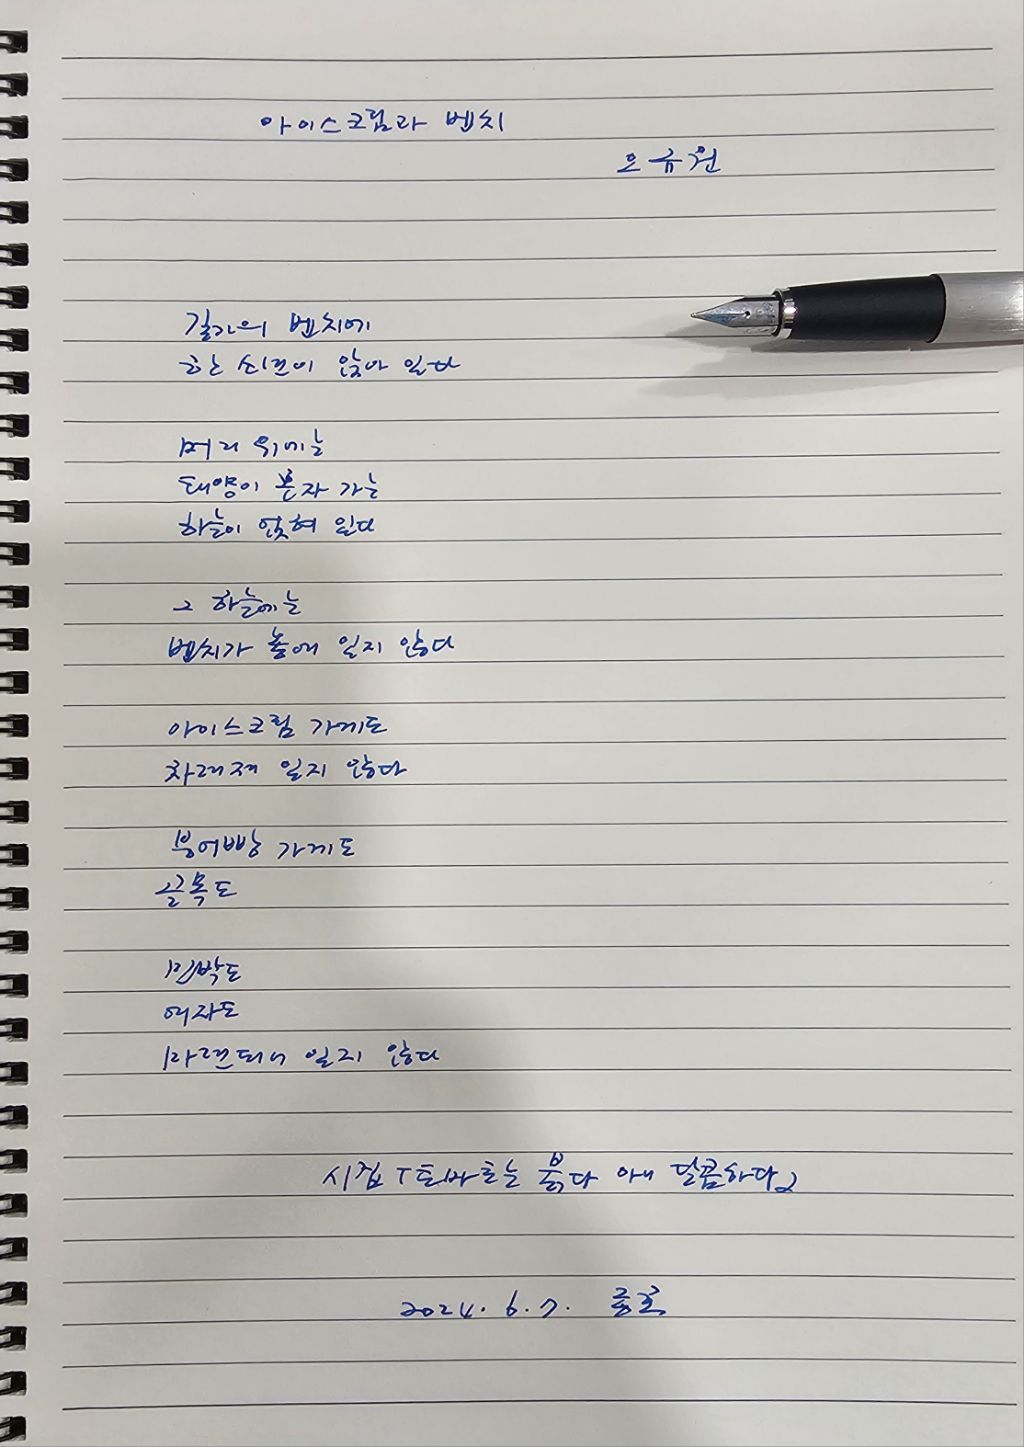 아이스크림과 벤치
오규원
길가의 벤치에
한 소년이 앉아 있다
머리 위에는
태양이 혼자 가는
하늘이 얹혀 있다
그 하늘에는
벤치가 놓여 있지 않다
아이스크림 가게도
차려져 있지 않다
붕어빵 가게도
골목도
민박도
여자도
마련되어 있지 않다
시집 「토마토는 붉다 아니 달콤하다」
2024. 6. 7.